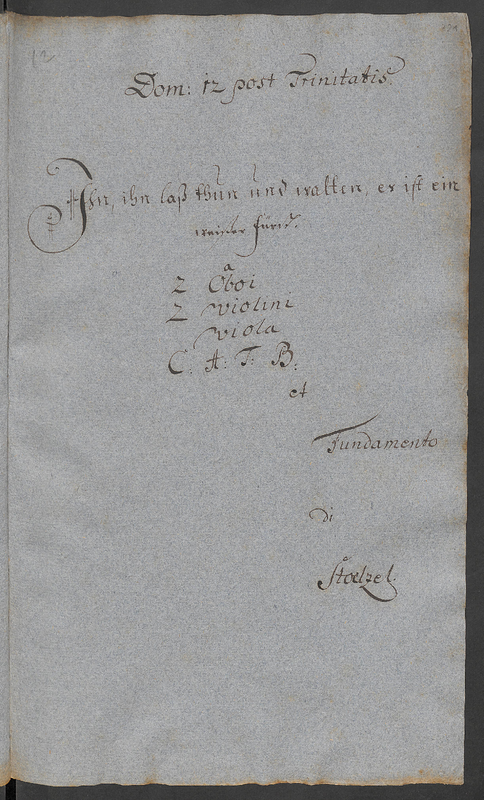 12
Dom: 12 post Trinitatis.
Ihn, ihn laß thun und walten, er ist ein
weiser Fürst.
a
2 Oboi
2 Violini
Viola
C. A. T. B.
et
Fundamento
di
Stoelzel.